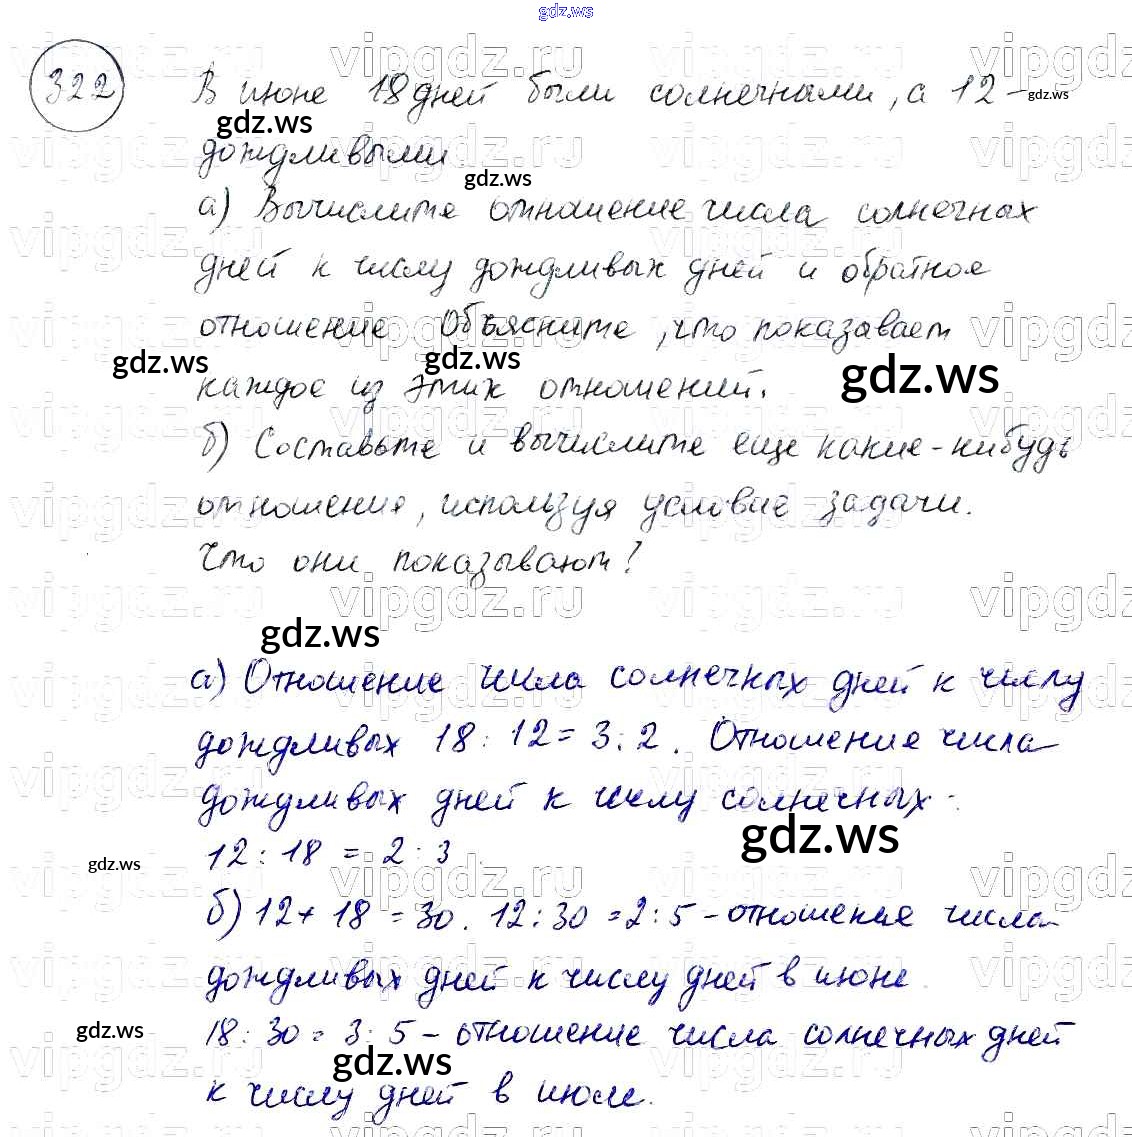 gdz.ws
322
В июне 18 дней были солнечными, а 12 -
gdz.ws
gdz.ws
дождливыми
gdz.ws
а) Вычислите отношение числа солнечных
дней к числу дождливых дней и обратное
отношение Объясните, что показывает
gdz.ws
gdz.ws
gdz.ws
каждое из этих отношений.
б) Составьте и вычислите еще какие-нибудь
отношения, используя условие задачи.
Что они показывают?
vipgdz.ru
gdz.ws
а) Отношение числа солнечных дней к числу
дождливых 18 : 12 = 3 : 2. Отношение числа
дождливых дней к числу солнечных -
gdz.ws
12 : 18 = 2 : 3.
gdz.ws
б) 12 + 18 = 30. 12 : 30 = 2 : 5 - отношение числа
дождливых дней к числу дней в июне.
gdz.ws
18 : 30 = 3 : 5 - отношение числа солнечных дней
gdz.ws
к числу дней в июле.